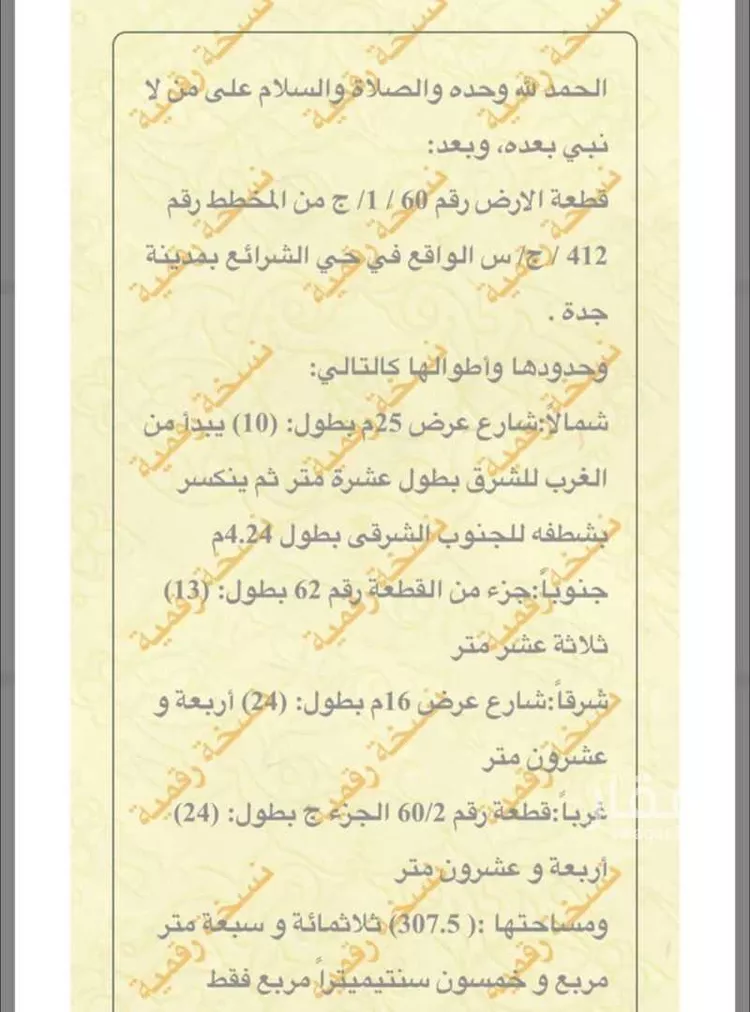 الحمد لله وحده والصلاة والسلام على من لا
نبي بعده، وبعد:
قطعة الارض رقم 60 / 1/ ج من المخطط رقم
412 / ج/ س الواقع في حي الشرائع بمدينة
جدة .
وحدودها وأطوالها كالتالي:
شمالاً:شارع عرض 25م بطول: (10) يبدأ من
الغرب للشرق بطول عشرة متر ثم ينكسر
بشطفه للجنوب الشرقى بطول 4.24م
جنوباً:جزء من القطعة رقم 62 بطول: (13)
ثلاثة عشر متر
شرقاً:شارع عرض 16م بطول: (24) أربعة و
عشرون متر
غرباً:قطعة رقم 60/2 الجزء ج بطول: (24)
أربعة و عشرون متر
ومساحتها :( 307.5) ثلاثمائة و سبعة متر
مربع و خمسون سنتيميتراً مربع فقط
نسخة رقمية